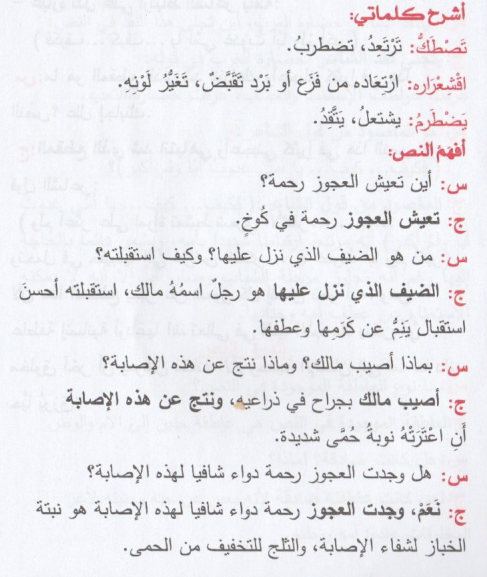 أشرح كلماتي:
تَصْطَكُّ: تَرْتَعِدُ، تضطربُ.
اقْشِعْرَاره: ارْتِعَاده من فَزَعٍ أو بَرْد تَقَبَّضّ، تَغَيُّرُ لَوْنِهِ.
يَضْطَرِمُ: يشتعلُ، يَتَّقِدُ.
أفهم النص:
س: أين تعيش العجوز رحمة؟
ج: تعيش العجوز رحمة في كُوخٍ.
س: من هو الضيف الذي نزل عليها؟ وكيف استقبلته؟
ج: الضيف الذي نزل عليها هو رجلٌ اسمُهُ مالك، استقبلته أحسنَ
استقبال يَنِمُّ عن كَرَمِها وعطفها.
س: بماذا أصيب مالك؟ وماذا نتج عن هذه الإصابة؟
ج: أصيب مالك بجراح في ذراعيهِ، ونتج عن هذه الإصابة
أَنِ اعْتَرَتْهُ نوبةُ حُمَى شديدة.
س: هل وجدت العجوز رحمة دواء شافيا لهذه الإصابة؟
ج: نَعَمْ، وجدت العجوز رحمة دواء شافيا لهذه الإصابة هو نبتة
الخباز لشفاء الإصابة، والثلج للتخفيف من الحمى.